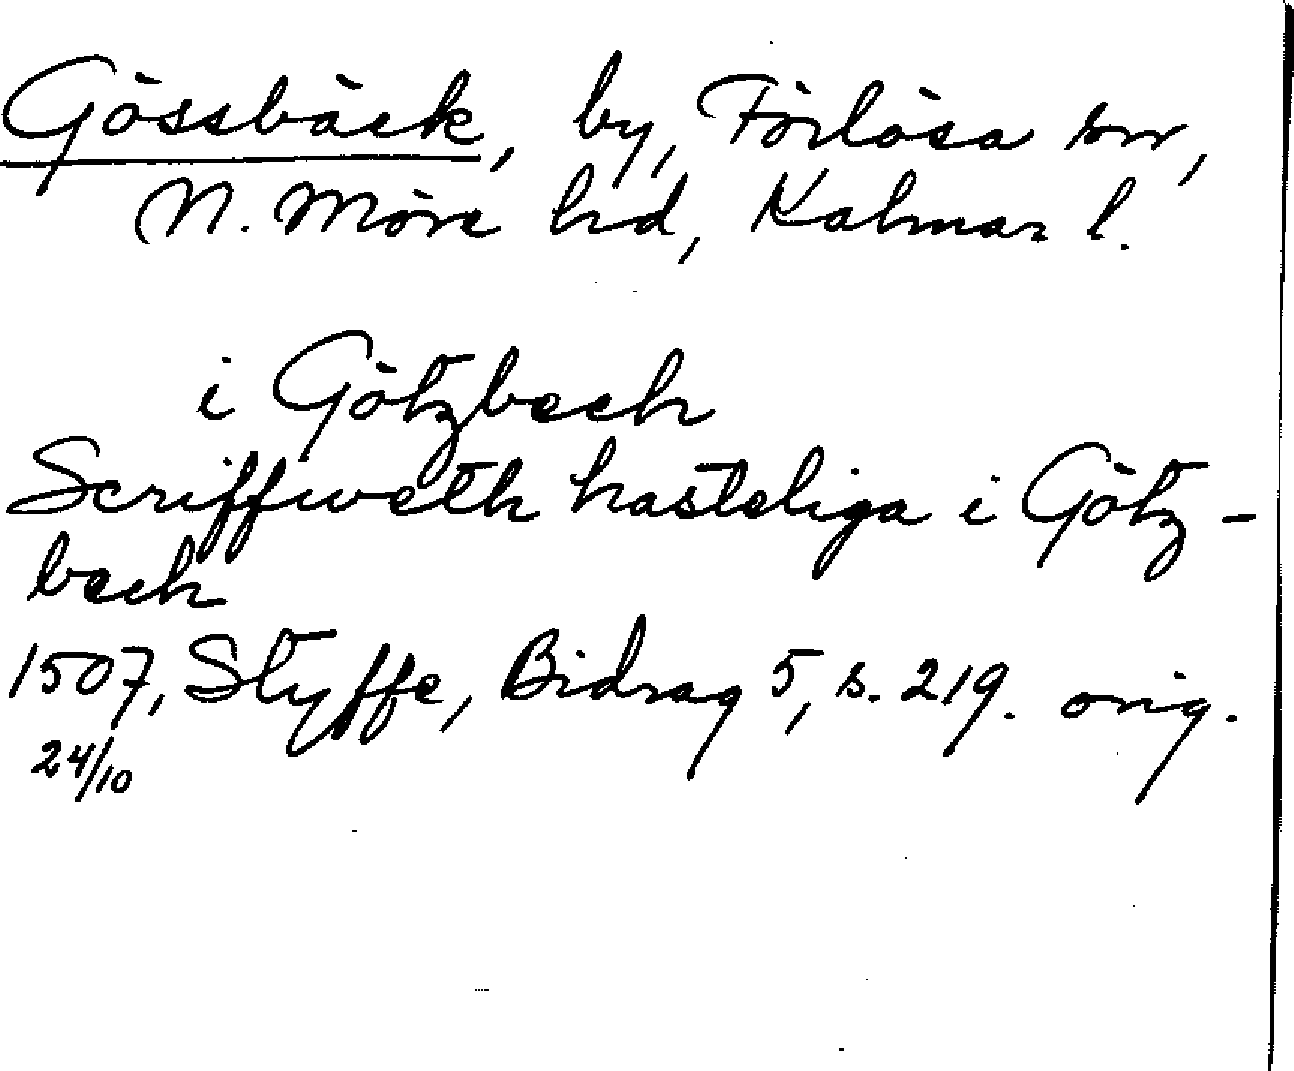 Gössbäck, by, Förlösa sn,
N. Möre hd, Kalmar l.
i Götzbech
Scriffweth hasteliga i Götz-
bech
1507, Styffe, Bidrag 5, s. 219. orig.
24/10